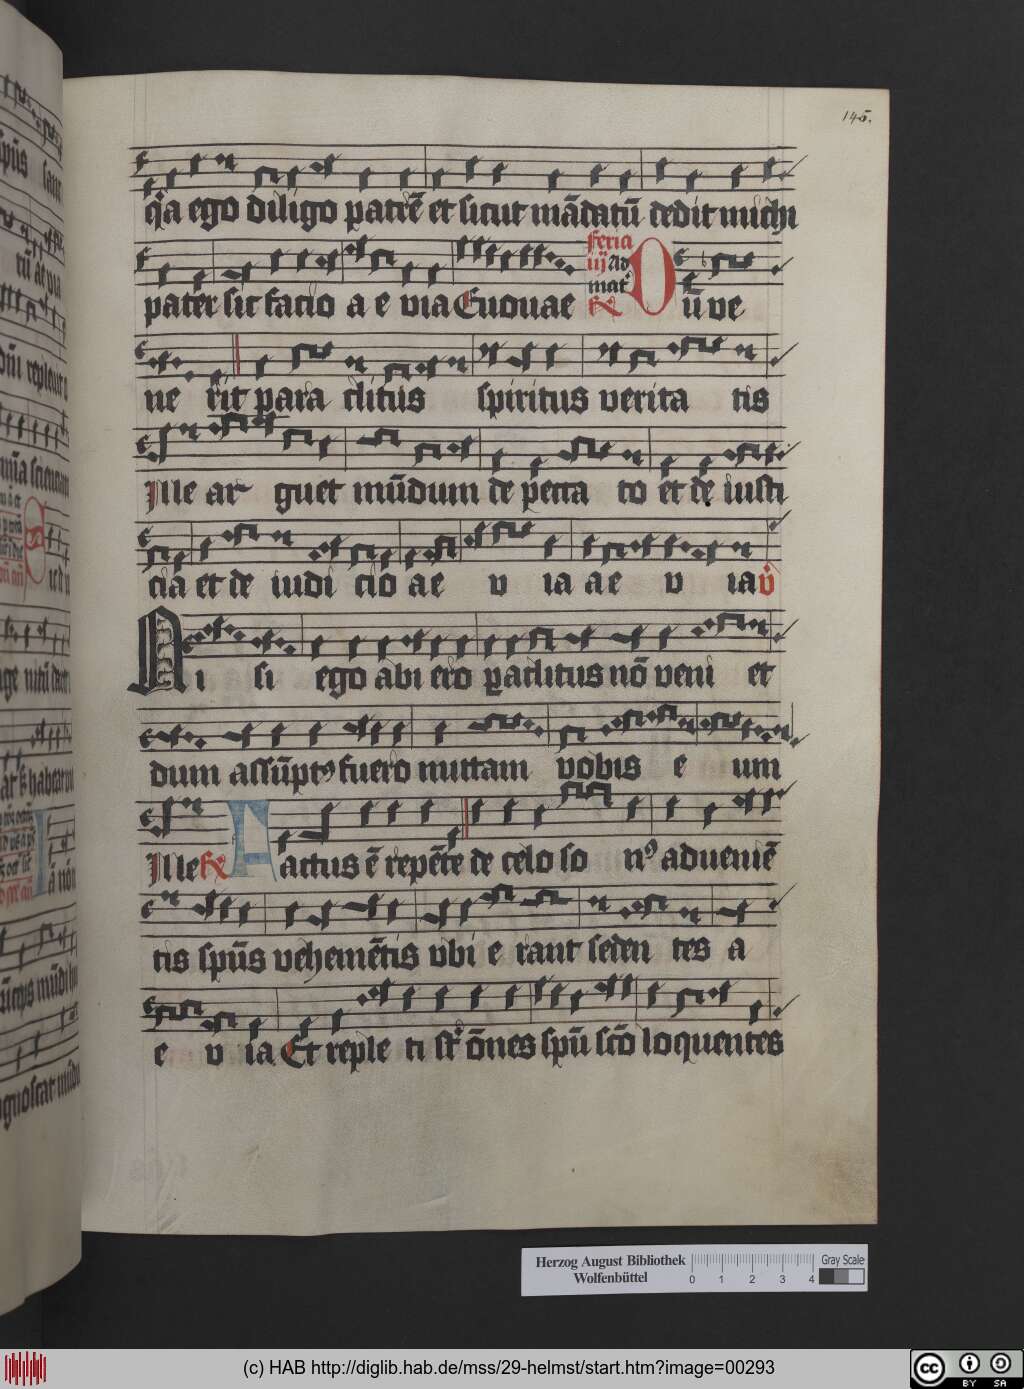 145.
q͛a ego diligo patrē et sicut mādatū dedit michi
feria
iij Ad
mat͛
R̷ D
pater sic facio a e via Euouae ū ve
ne rit para clitus spiritus verita tis
Ille ar guet mūdum de pecca to et de iusti
cia et de iudi cio a e v ia a e v ia v̇
Ni si ego abi ero ꝑaclitus nō veni et
dum assūptꝰ fuero mittam vobis e um
Ille R̷ Factus ē repēte de celo so nꝰ adueniē
tis spūs vehemētis vbi e rant seden tes a
e v ia Et reple ti st͛ ōnes spū scō loquentes
Herzog August Bibliothek
Wolfenbüttel
0 1 2 3 4
Gray Scale
(c) HAB http://diglib.hab.de/mss/29-helmst/start.htm?image=00293
cc BY SA